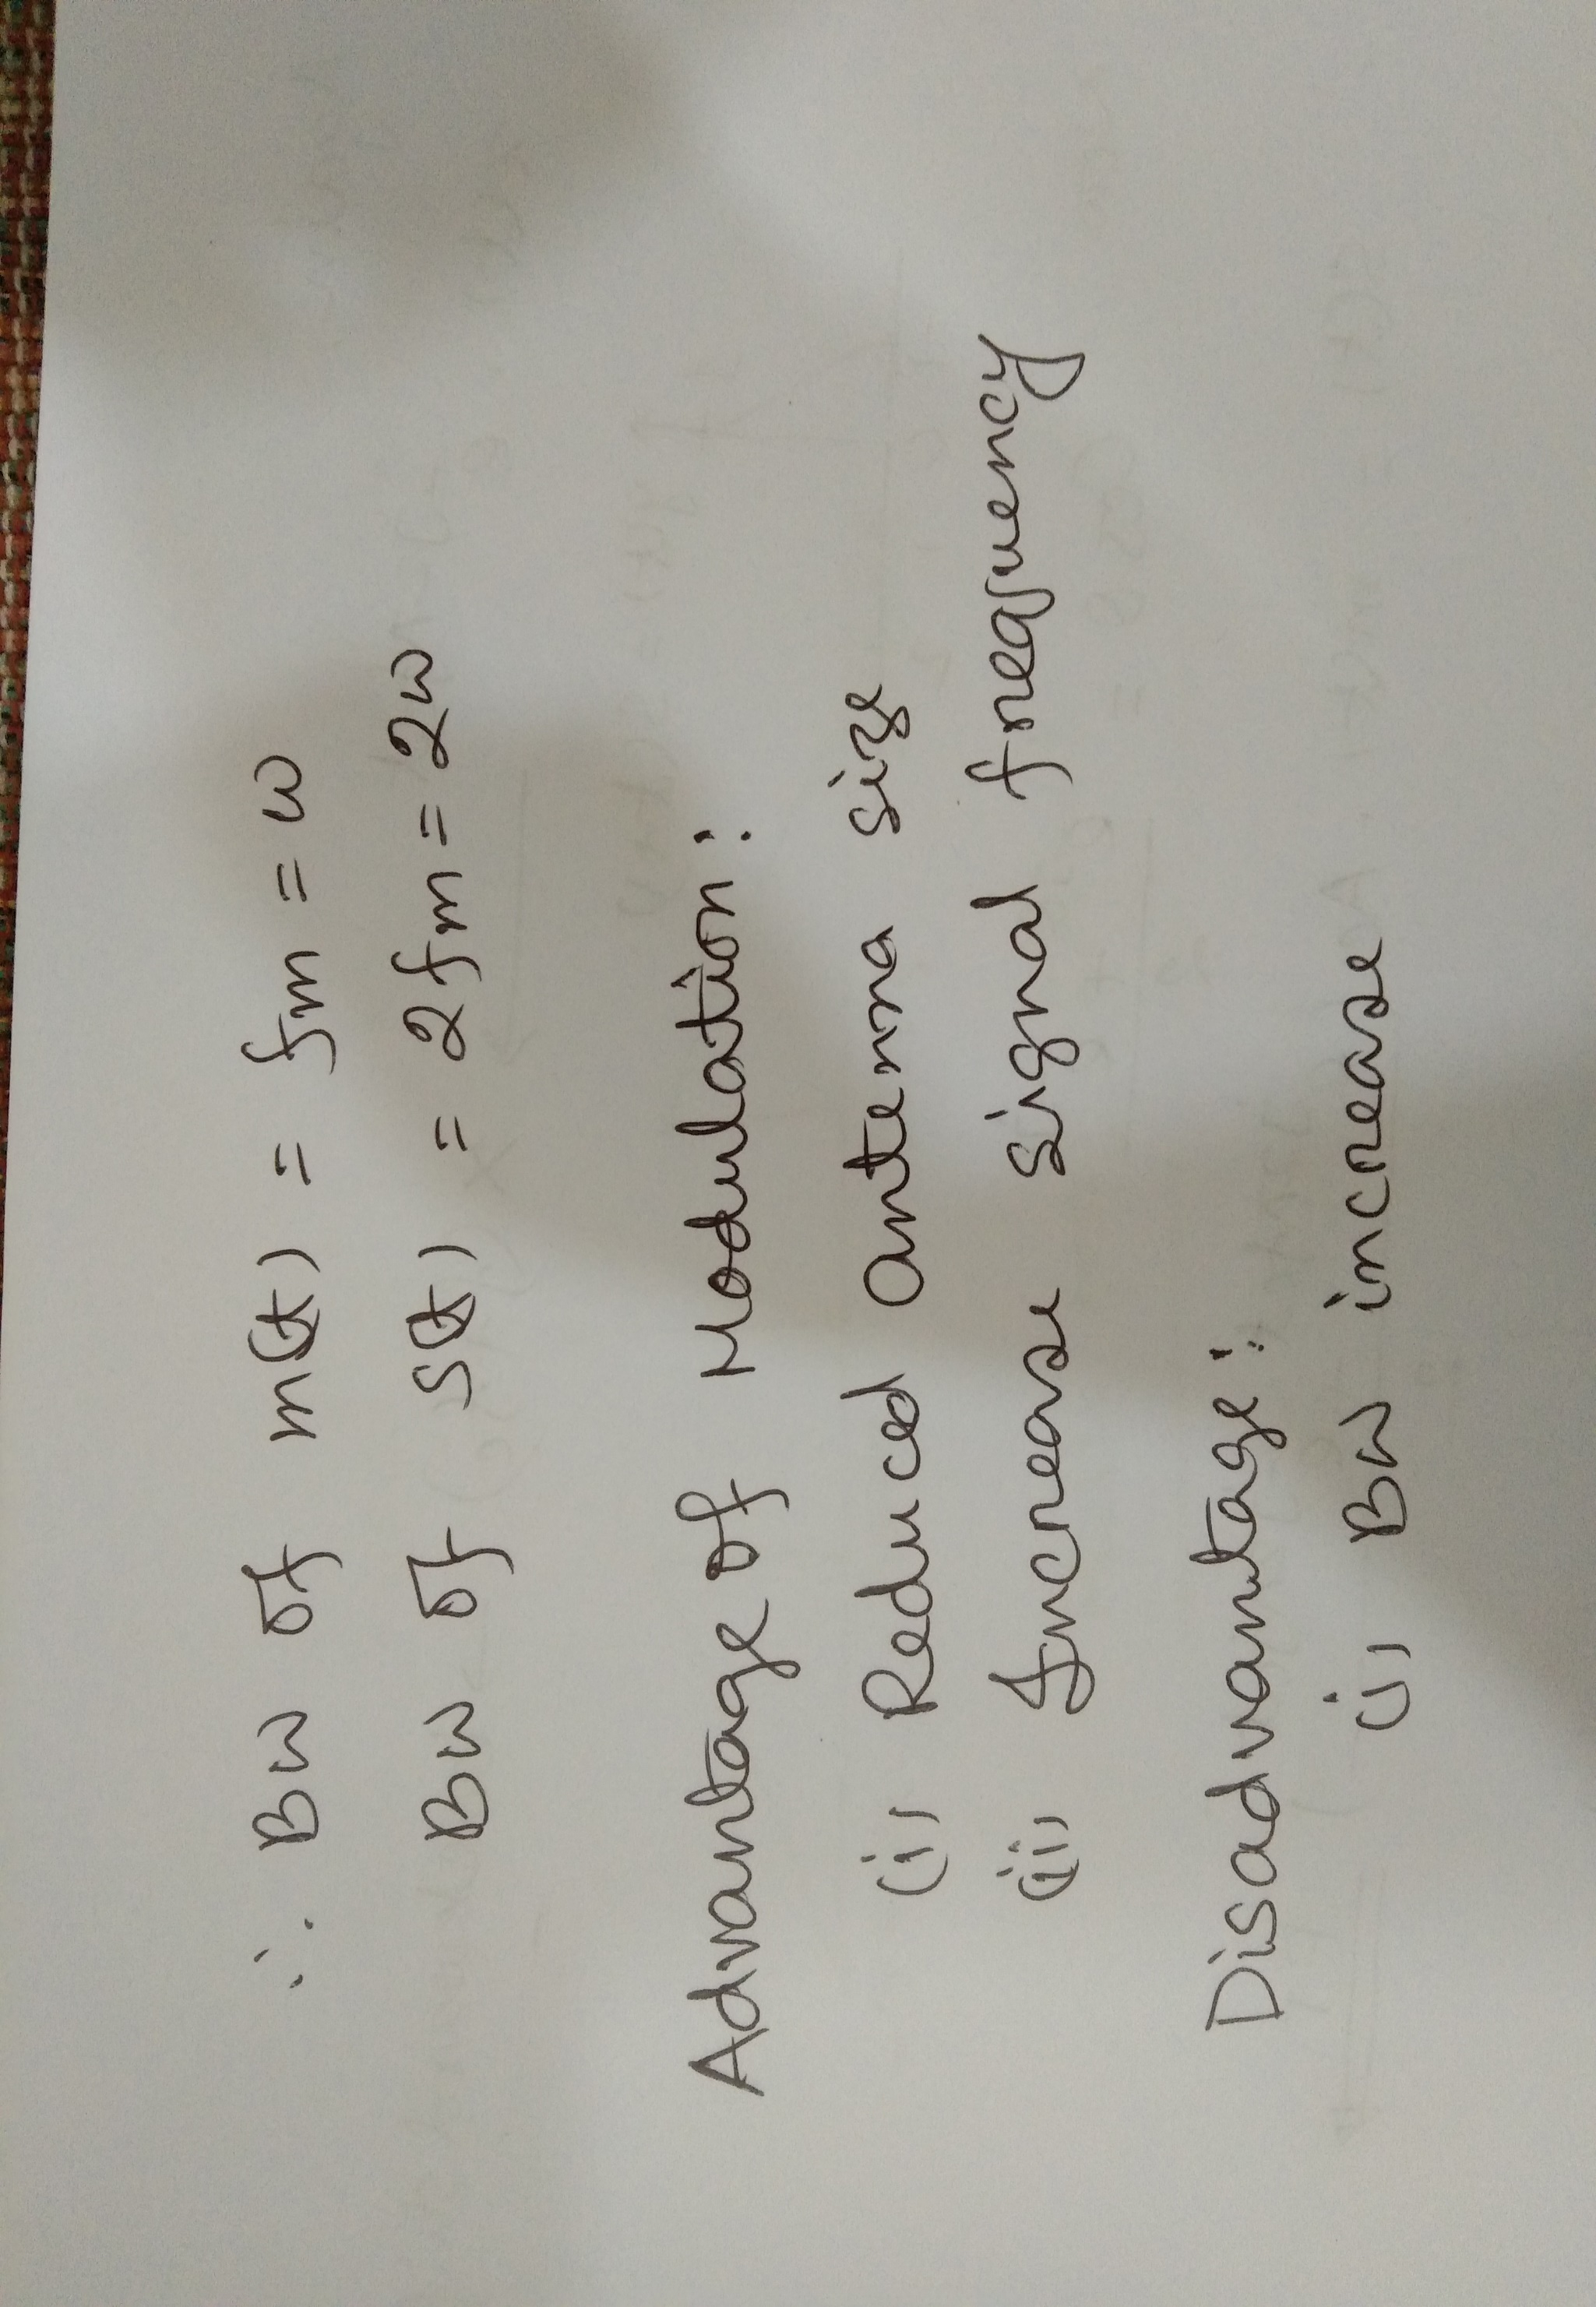 ∴ BW of m(t) = fm = w
BW of s(t) = 2fm = 2w
Advantage of Modulation:
(i) Reduced antenna size
(ii) Increase signal frequency
Disadvantage:
(i) BW increase